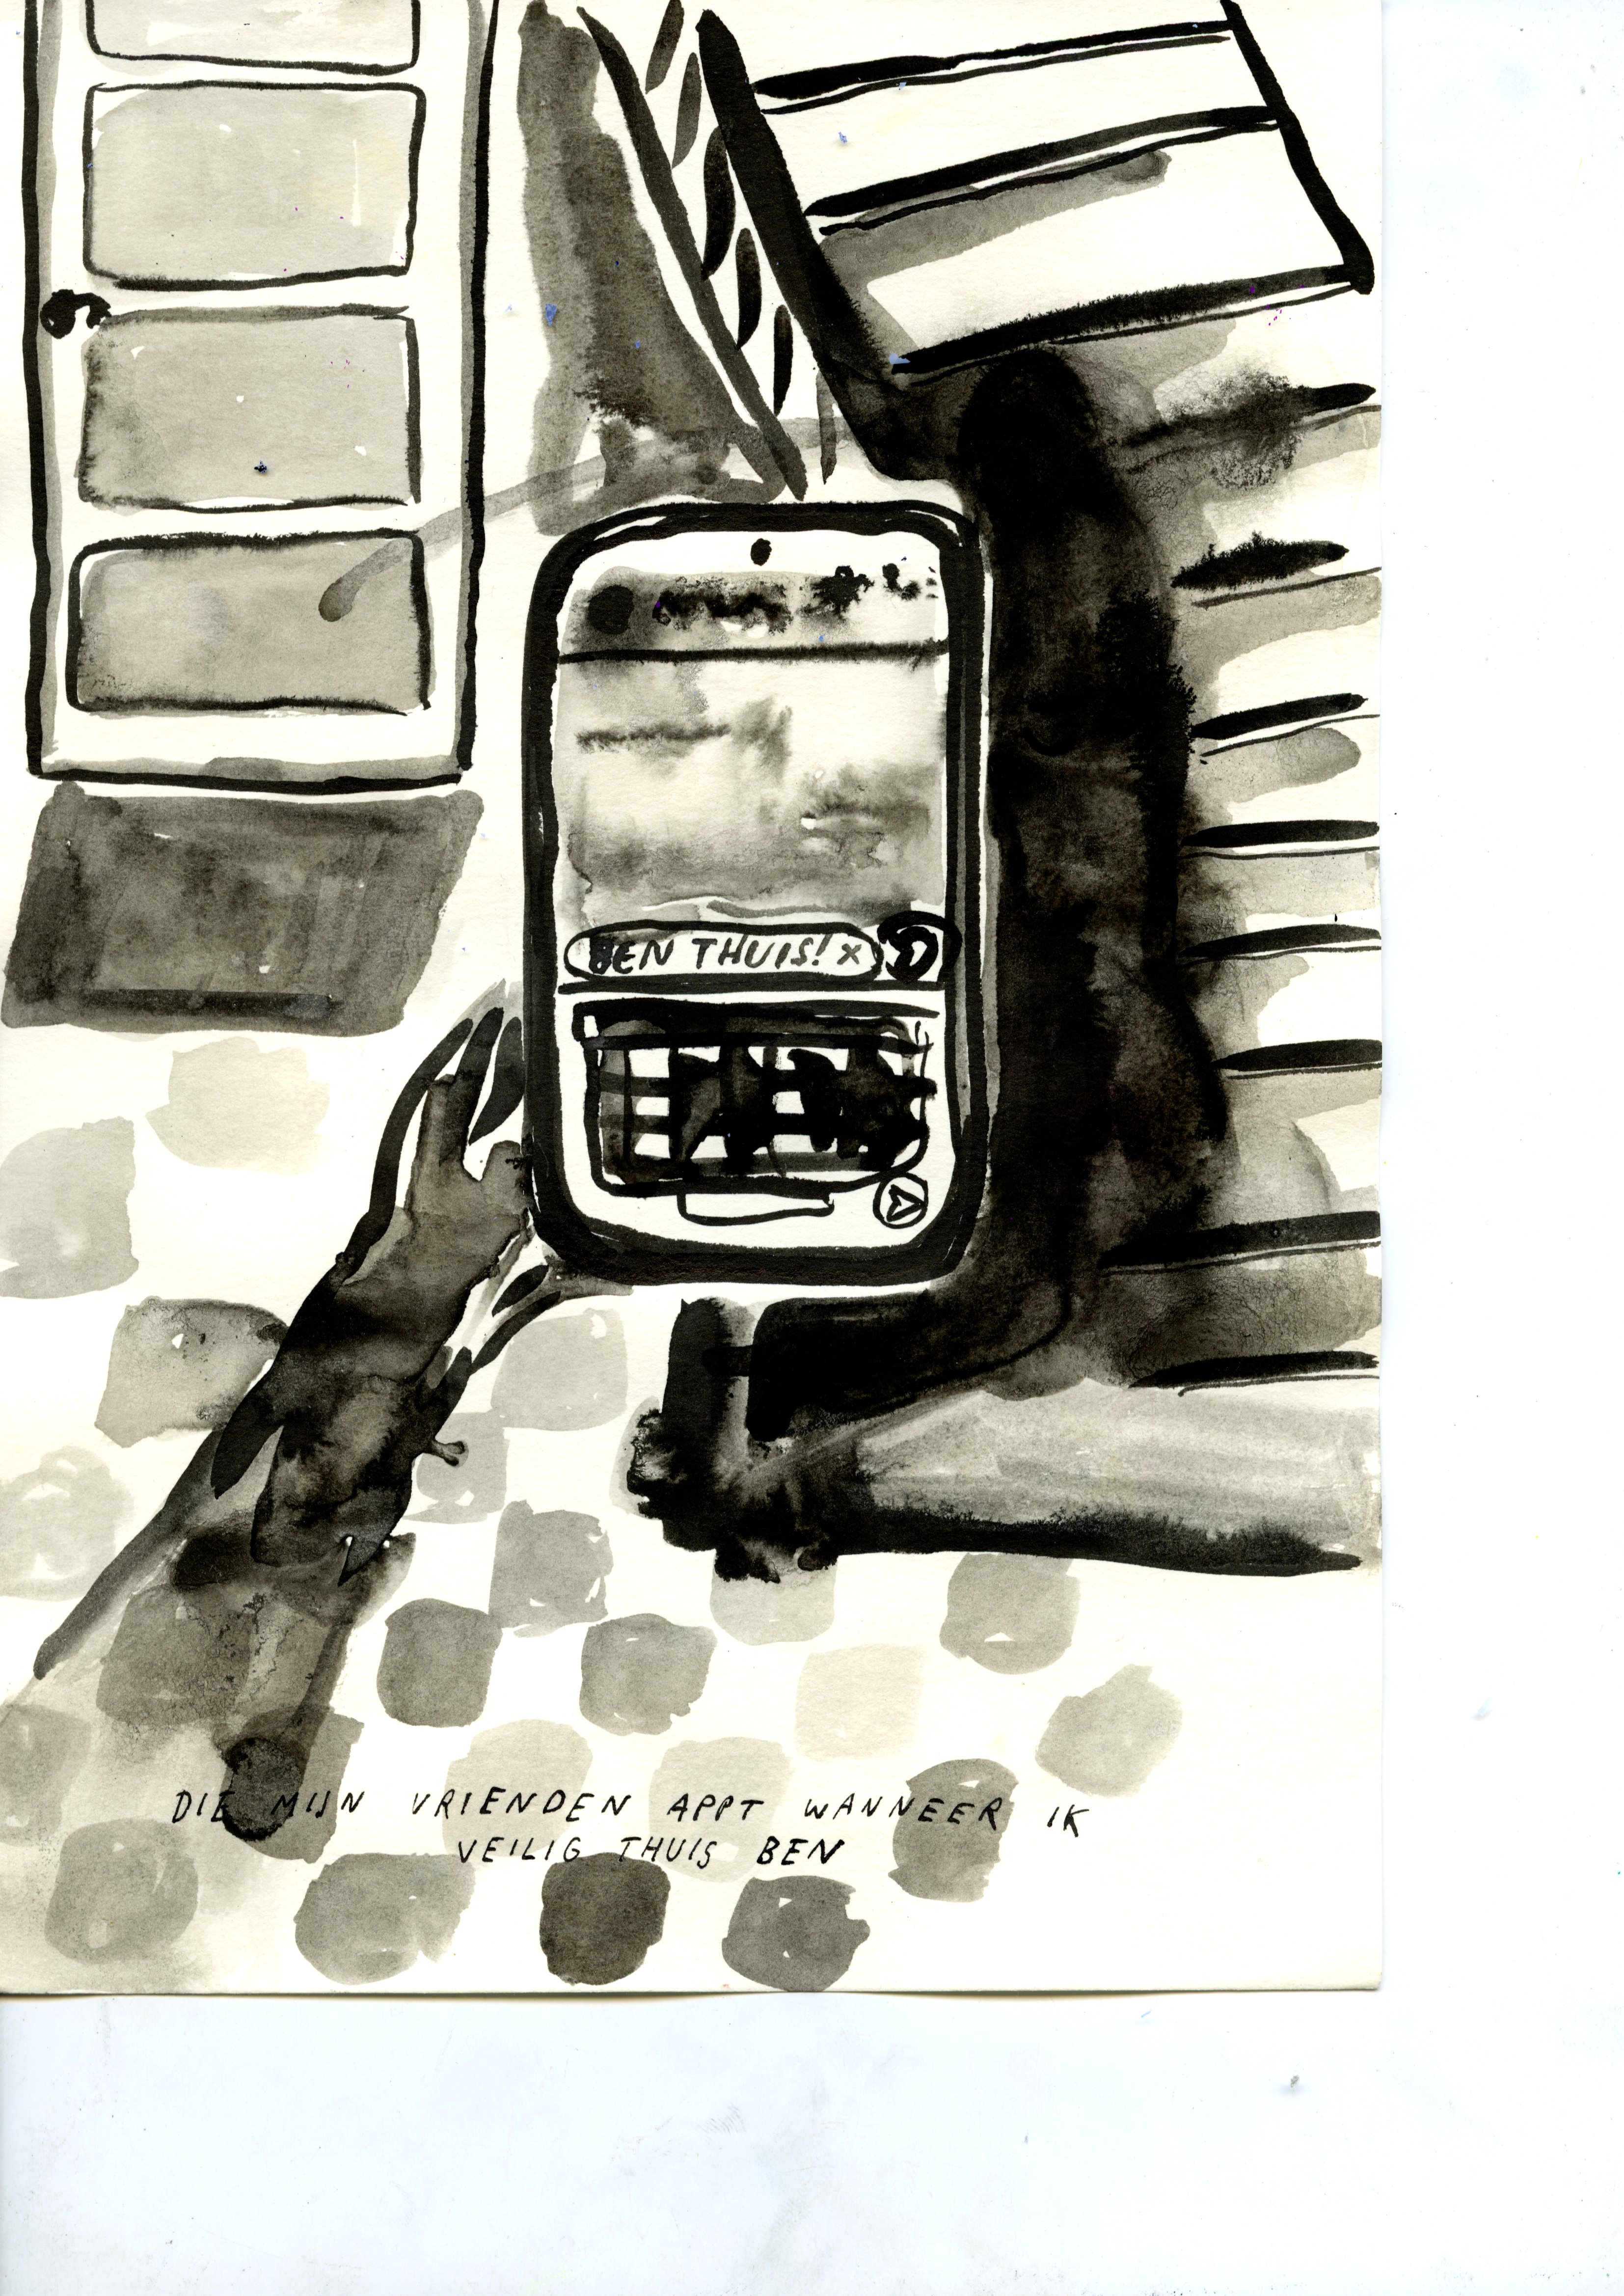 BEN THUIS! x
DIE MIJN VRIENDEN APPT WANNEER IK
VEILIG THUIS BEN